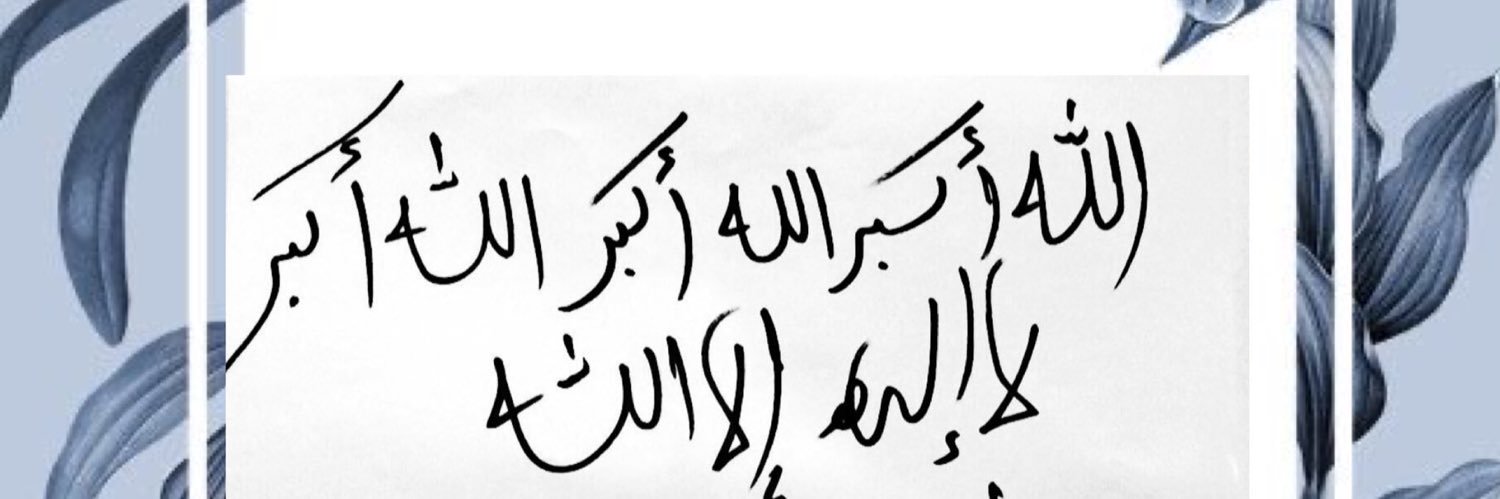 الله أكبر الله أكبر الله أكبر
لا إله إلا الله